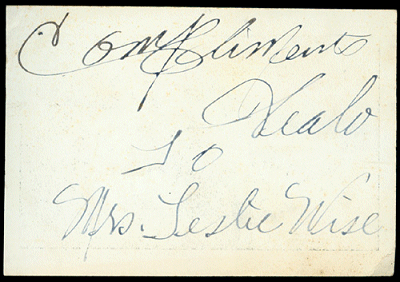 Compliments
To
Mrs. Leslie Wise